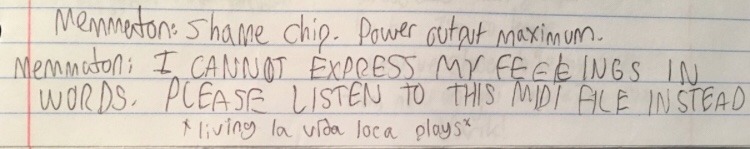 Memmaton: Shame chip. Power output maximum.
Memmaton: I CANNOT EXPRESS MY FEELINGS IN
WORDS. PLEASE LISTEN TO THIS MIDI FILE INSTEAD
*living la vida loca plays*